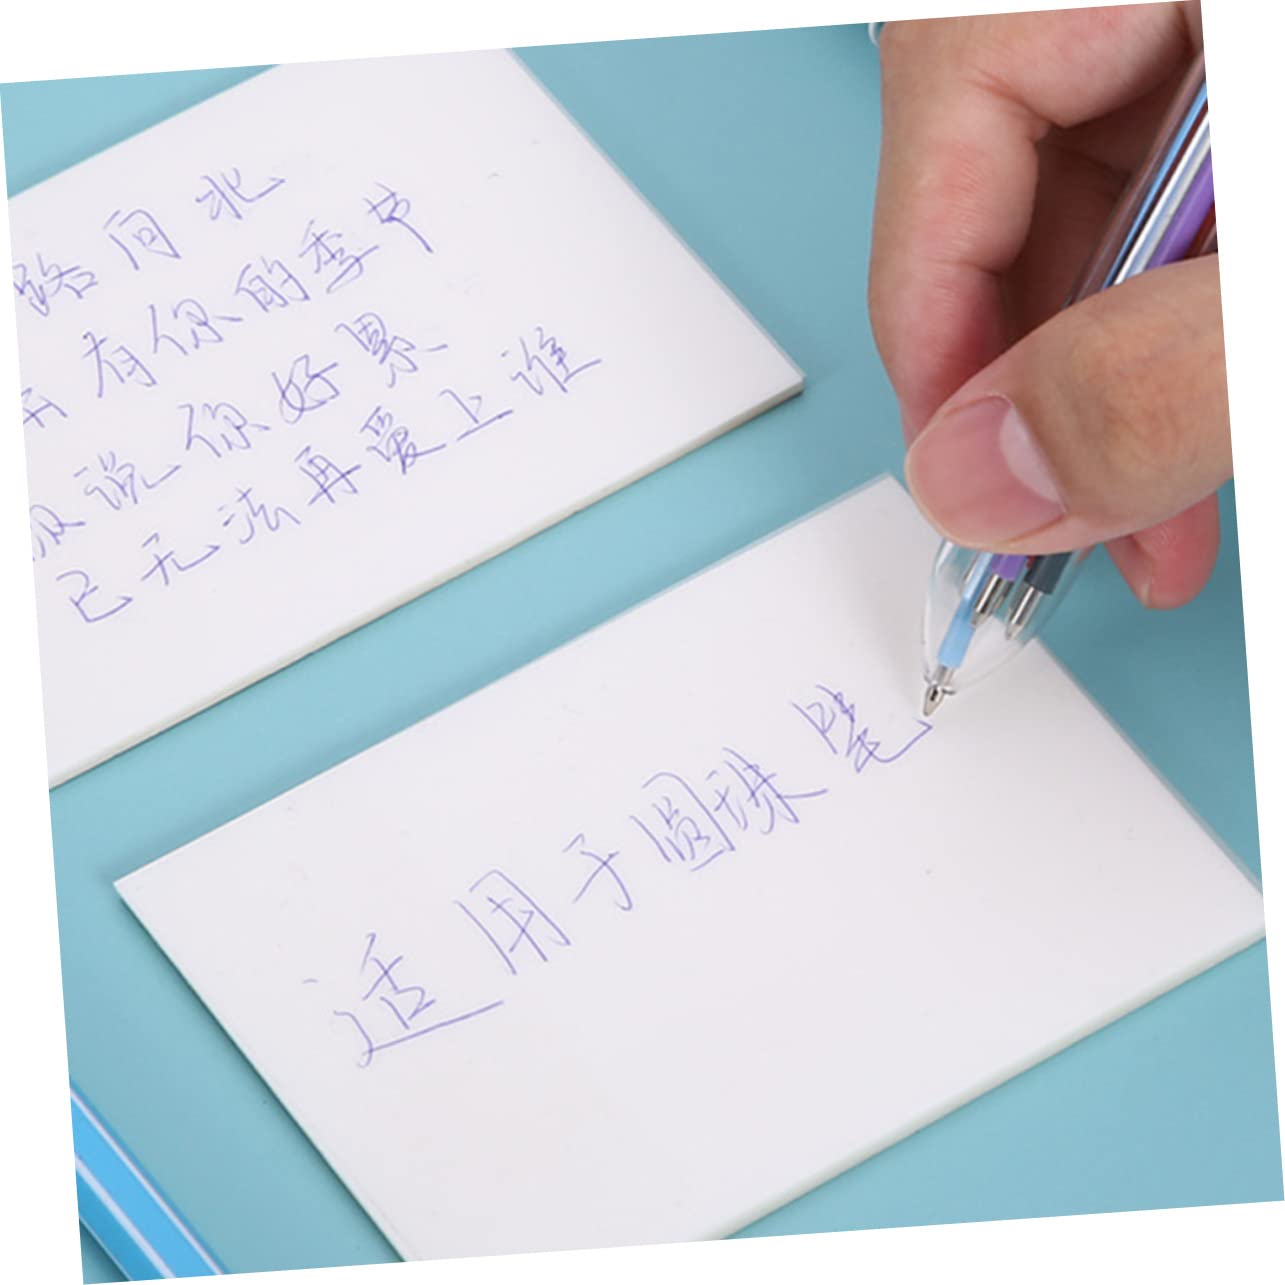 路向北
开有你的季节
说你好累
已无法再爱上谁
适用于圆珠笔